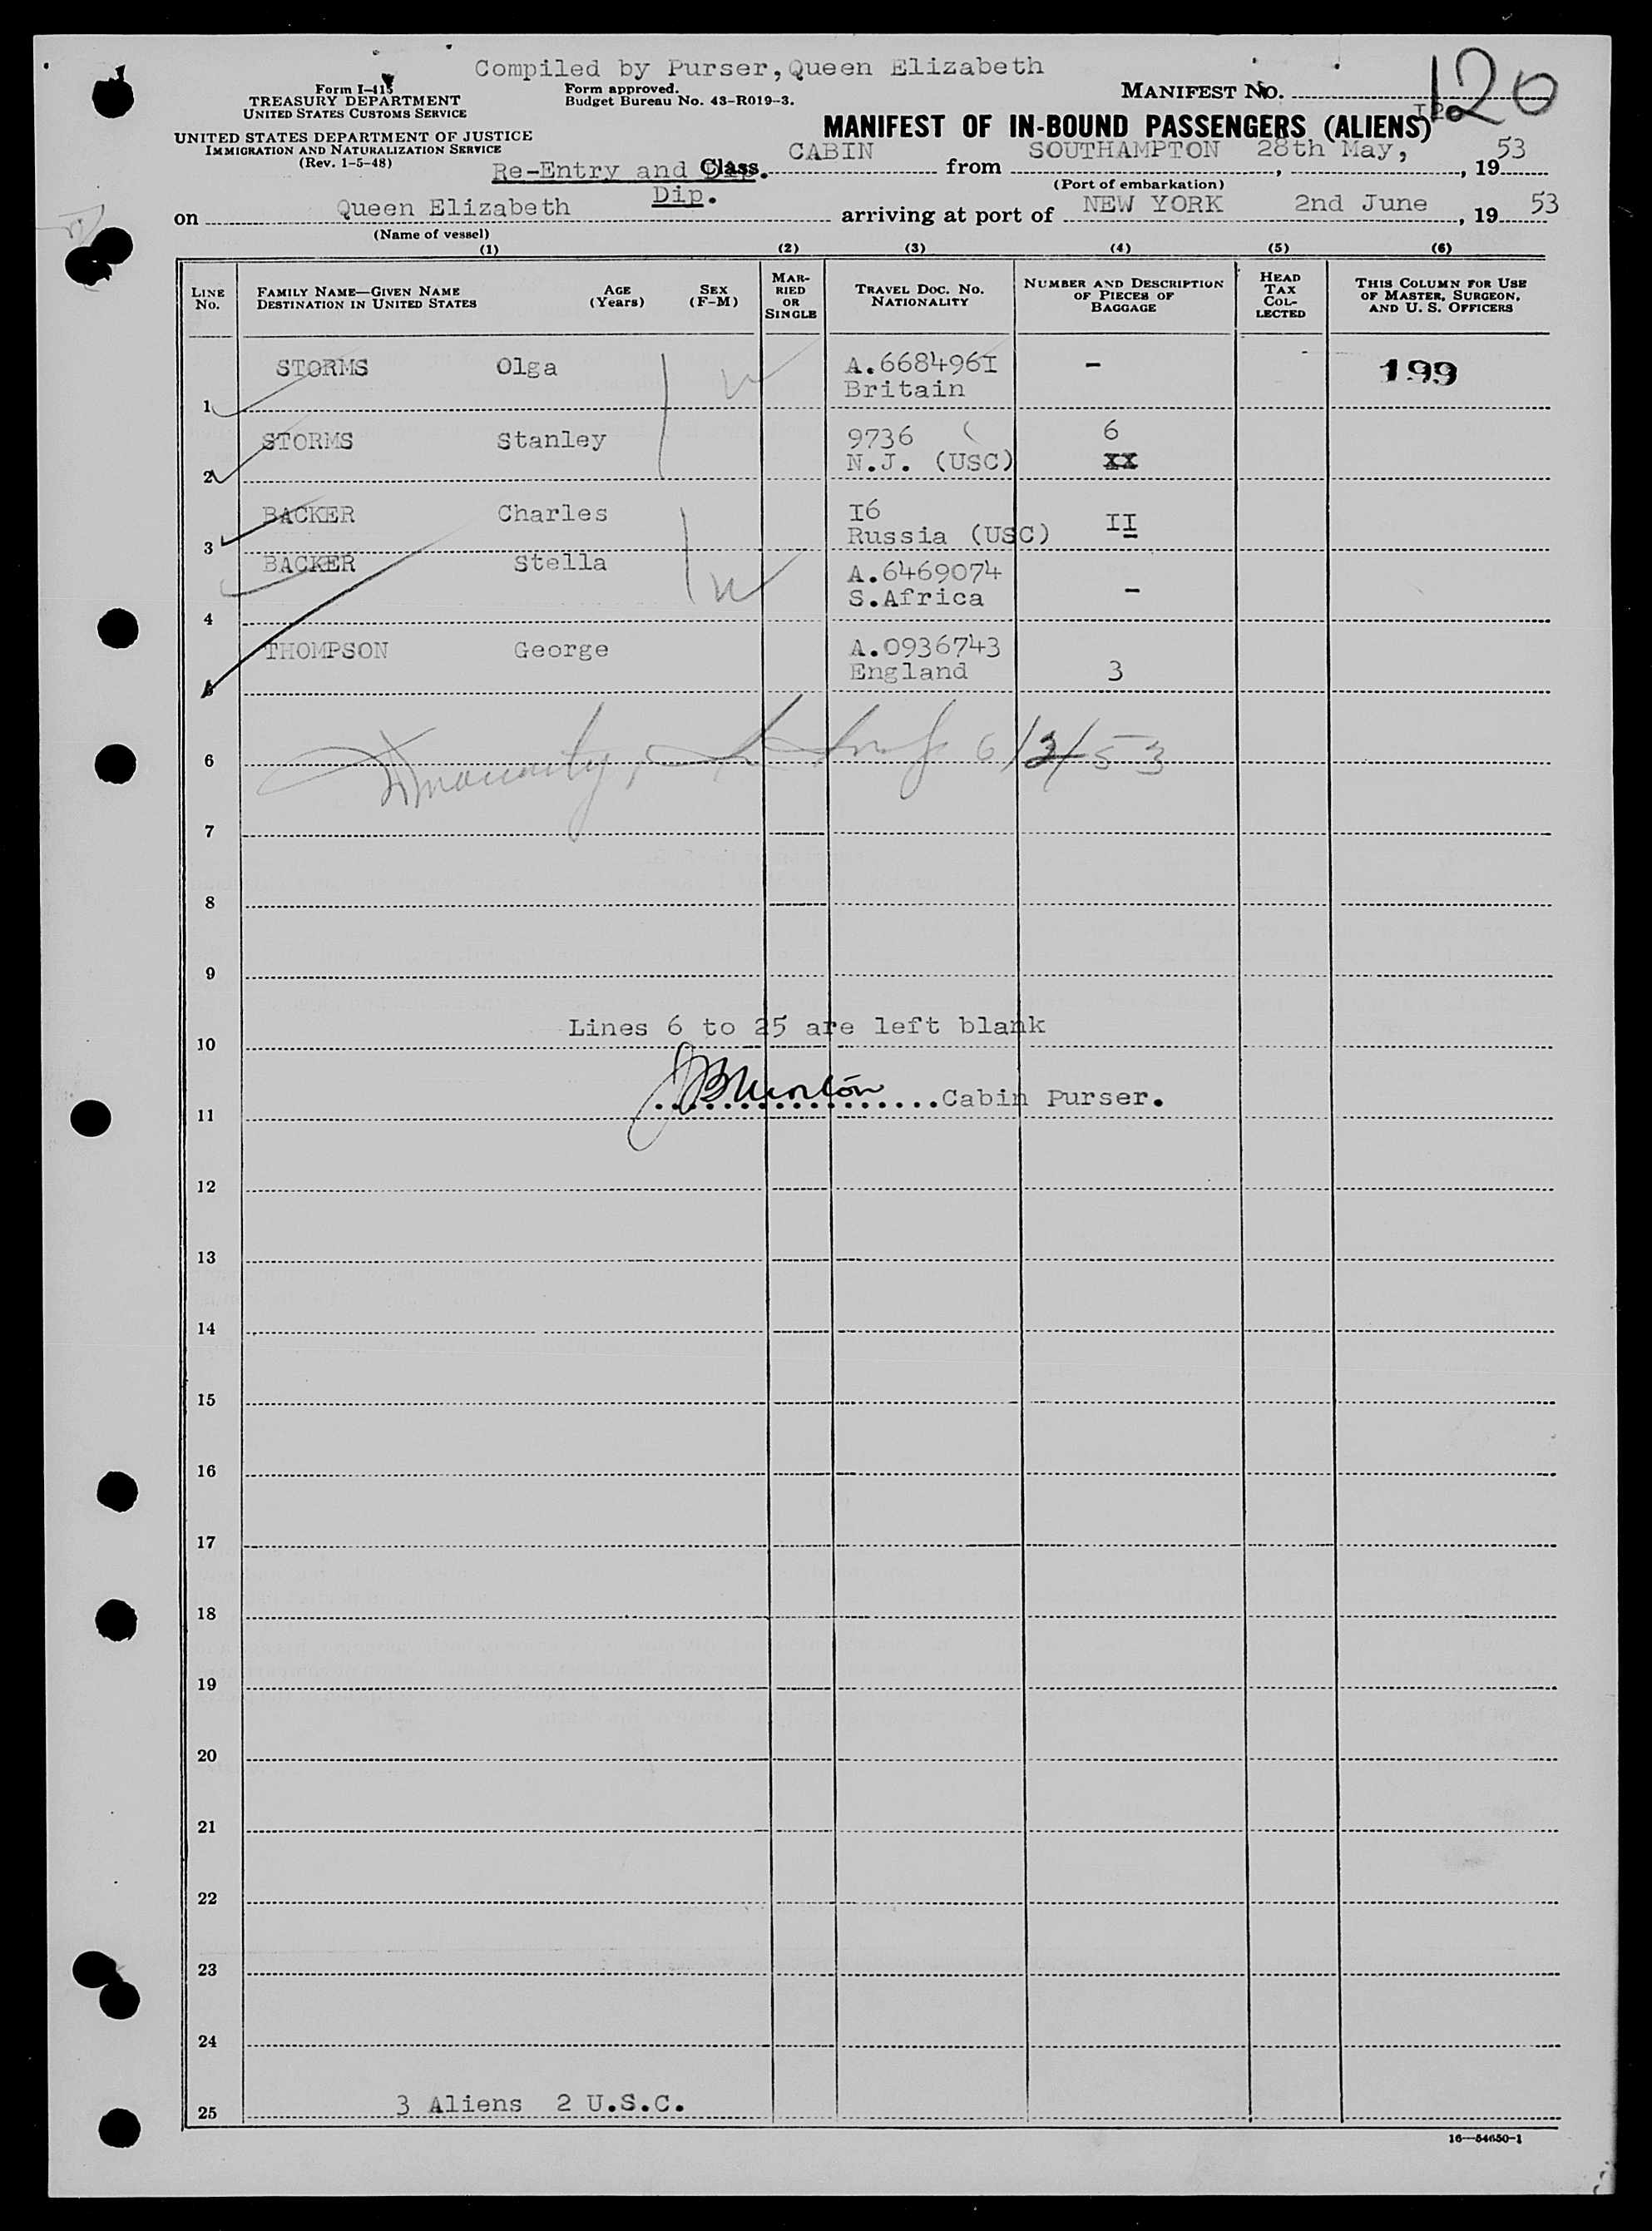 Compiled by Purser, Queen Elizabeth
Form I-415
TREASURY DEPARTMENT
UNITED STATES CUSTOMS SERVICE
Form approved.
Budget Bureau No. 43-R019-3.
MANIFEST NO. 120
I20
UNITED STATES DEPARTMENT OF JUSTICE
IMMIGRATION AND NATURALIZATION SERVICE
(Rev. 1-5-48)
MANIFEST OF IN-BOUND PASSENGERS (ALIENS)
Re-Entry and Class. CABIN from SOUTHAMPTON 28th May, , 19 53
Dip.
(Port of embarkation)
on Queen Elizabeth arriving at port of NEW YORK 2nd June , 19 53
(Name of vessel)
(1) (2) (3) (4) (5) (6)
LINE NO. FAMILY NAME—GIVEN NAME DESTINATION IN UNITED STATES AGE (Years) SEX (F-M) MARRIED OR SINGLE TRAVEL DOC. NO. NATIONALITY NUMBER AND DESCRIPTION OF PIECES OF BAGGAGE HEAD TAX COLLECTED THIS COLUMN FOR USE OF MASTER, SURGEON, AND U. S. OFFICERS
STORMS Olga A.668496I - 199
1 Britain
STORMS Stanley 9736 6
2 N.J. (USC) xx
BACKER Charles I6 II
3 Russia (USC)
BACKER Stella A.6469074
S.Africa -
4
THOMPSON George A.0936743
5 England 3
6 6/2/53
7
8
9
Lines 6 to 25 are left blank
10
11 ..................Cabin Purser.
12
13
14
15
16
17
18
19
20
21
22
23
24
25 3 Aliens 2 U.S.C.
16—54650-1